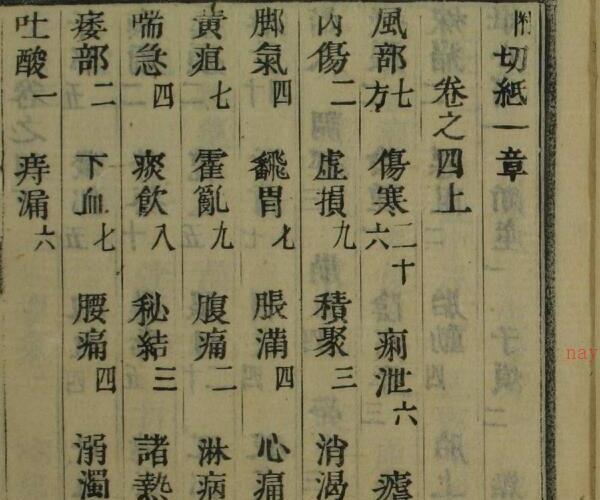 附切紙一章
卷之四上
風部七方 傷寒二十六 痢泄六 瘧
內傷二 虛損九 積聚三 消渴
脚氣四 翻胃七 脹滿四 心痛
黃疸七 霍亂九 腹痛二 淋病
喘急四 痰飲八 秘結三 諸熱
痿部二 下血七 腰痛四 溺濁
吐酸一 痔漏六
nay